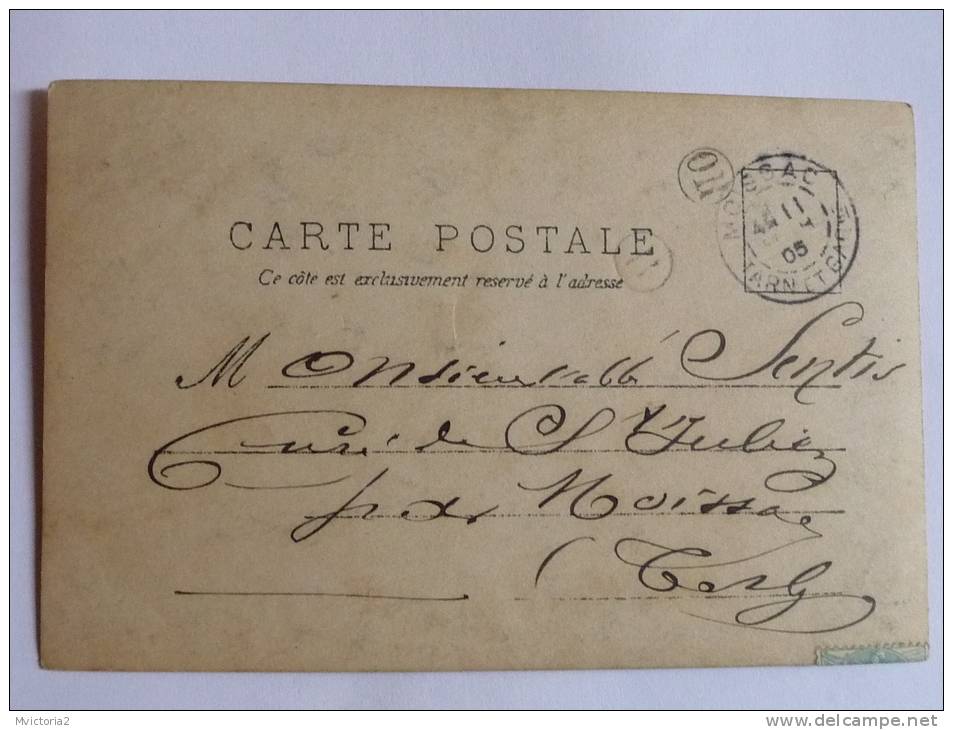 CARTE POSTALE
Ce côte est exclusivement reservé à l'adresse
OR
MOISSAC
11
05
TARN ET GAR
Monsieur l'abbé Sentis
Curé de St Julien
par Moissac
(T et G
Mvictoria2
www.delcampe.net